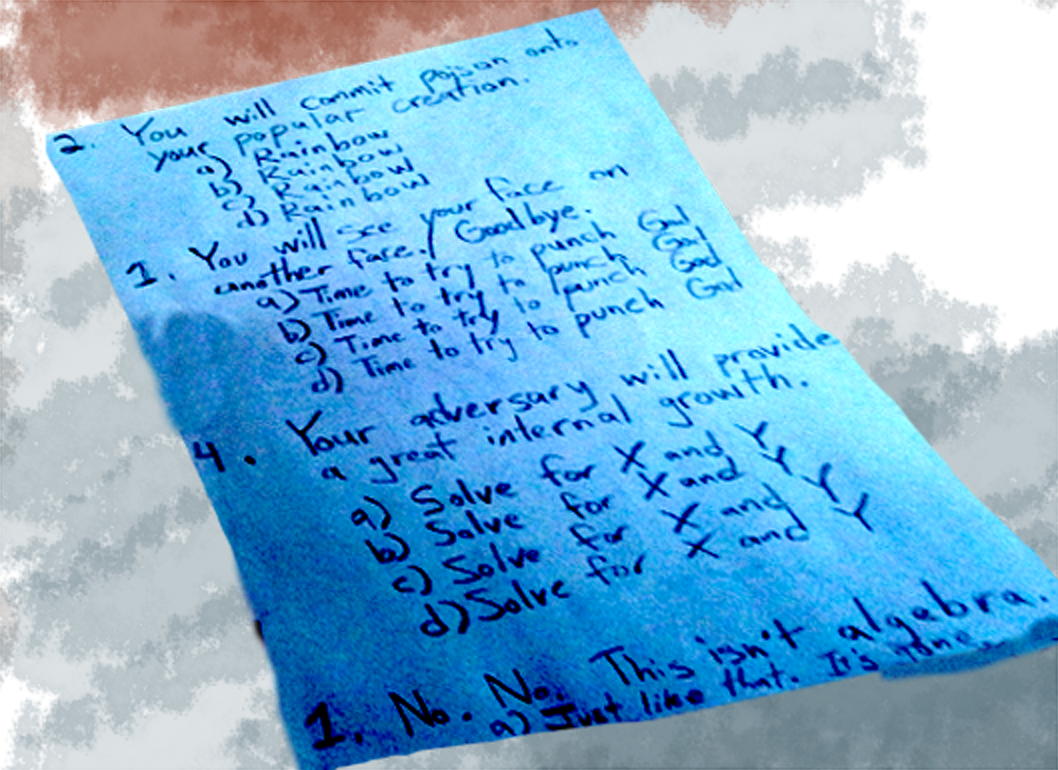 2. You will commit poison onto
your popular creation.
a) Rainbow
b) Rainbow
c) Rainbow
d) Rainbow
1. You will see your face on
another face. / Goodbye.
a) Time to try to punch God
b) Time to try to punch God
c) Time to try to punch God
d) Time to try to punch God
4. Your adversary will provide
a great internal growth.
a) Solve for X and Y
b) Solve for X and Y
c) Solve for X and Y
d) Solve for X and Y
1. No. No. This isn't algebra.
a) Just like that. It's gone.